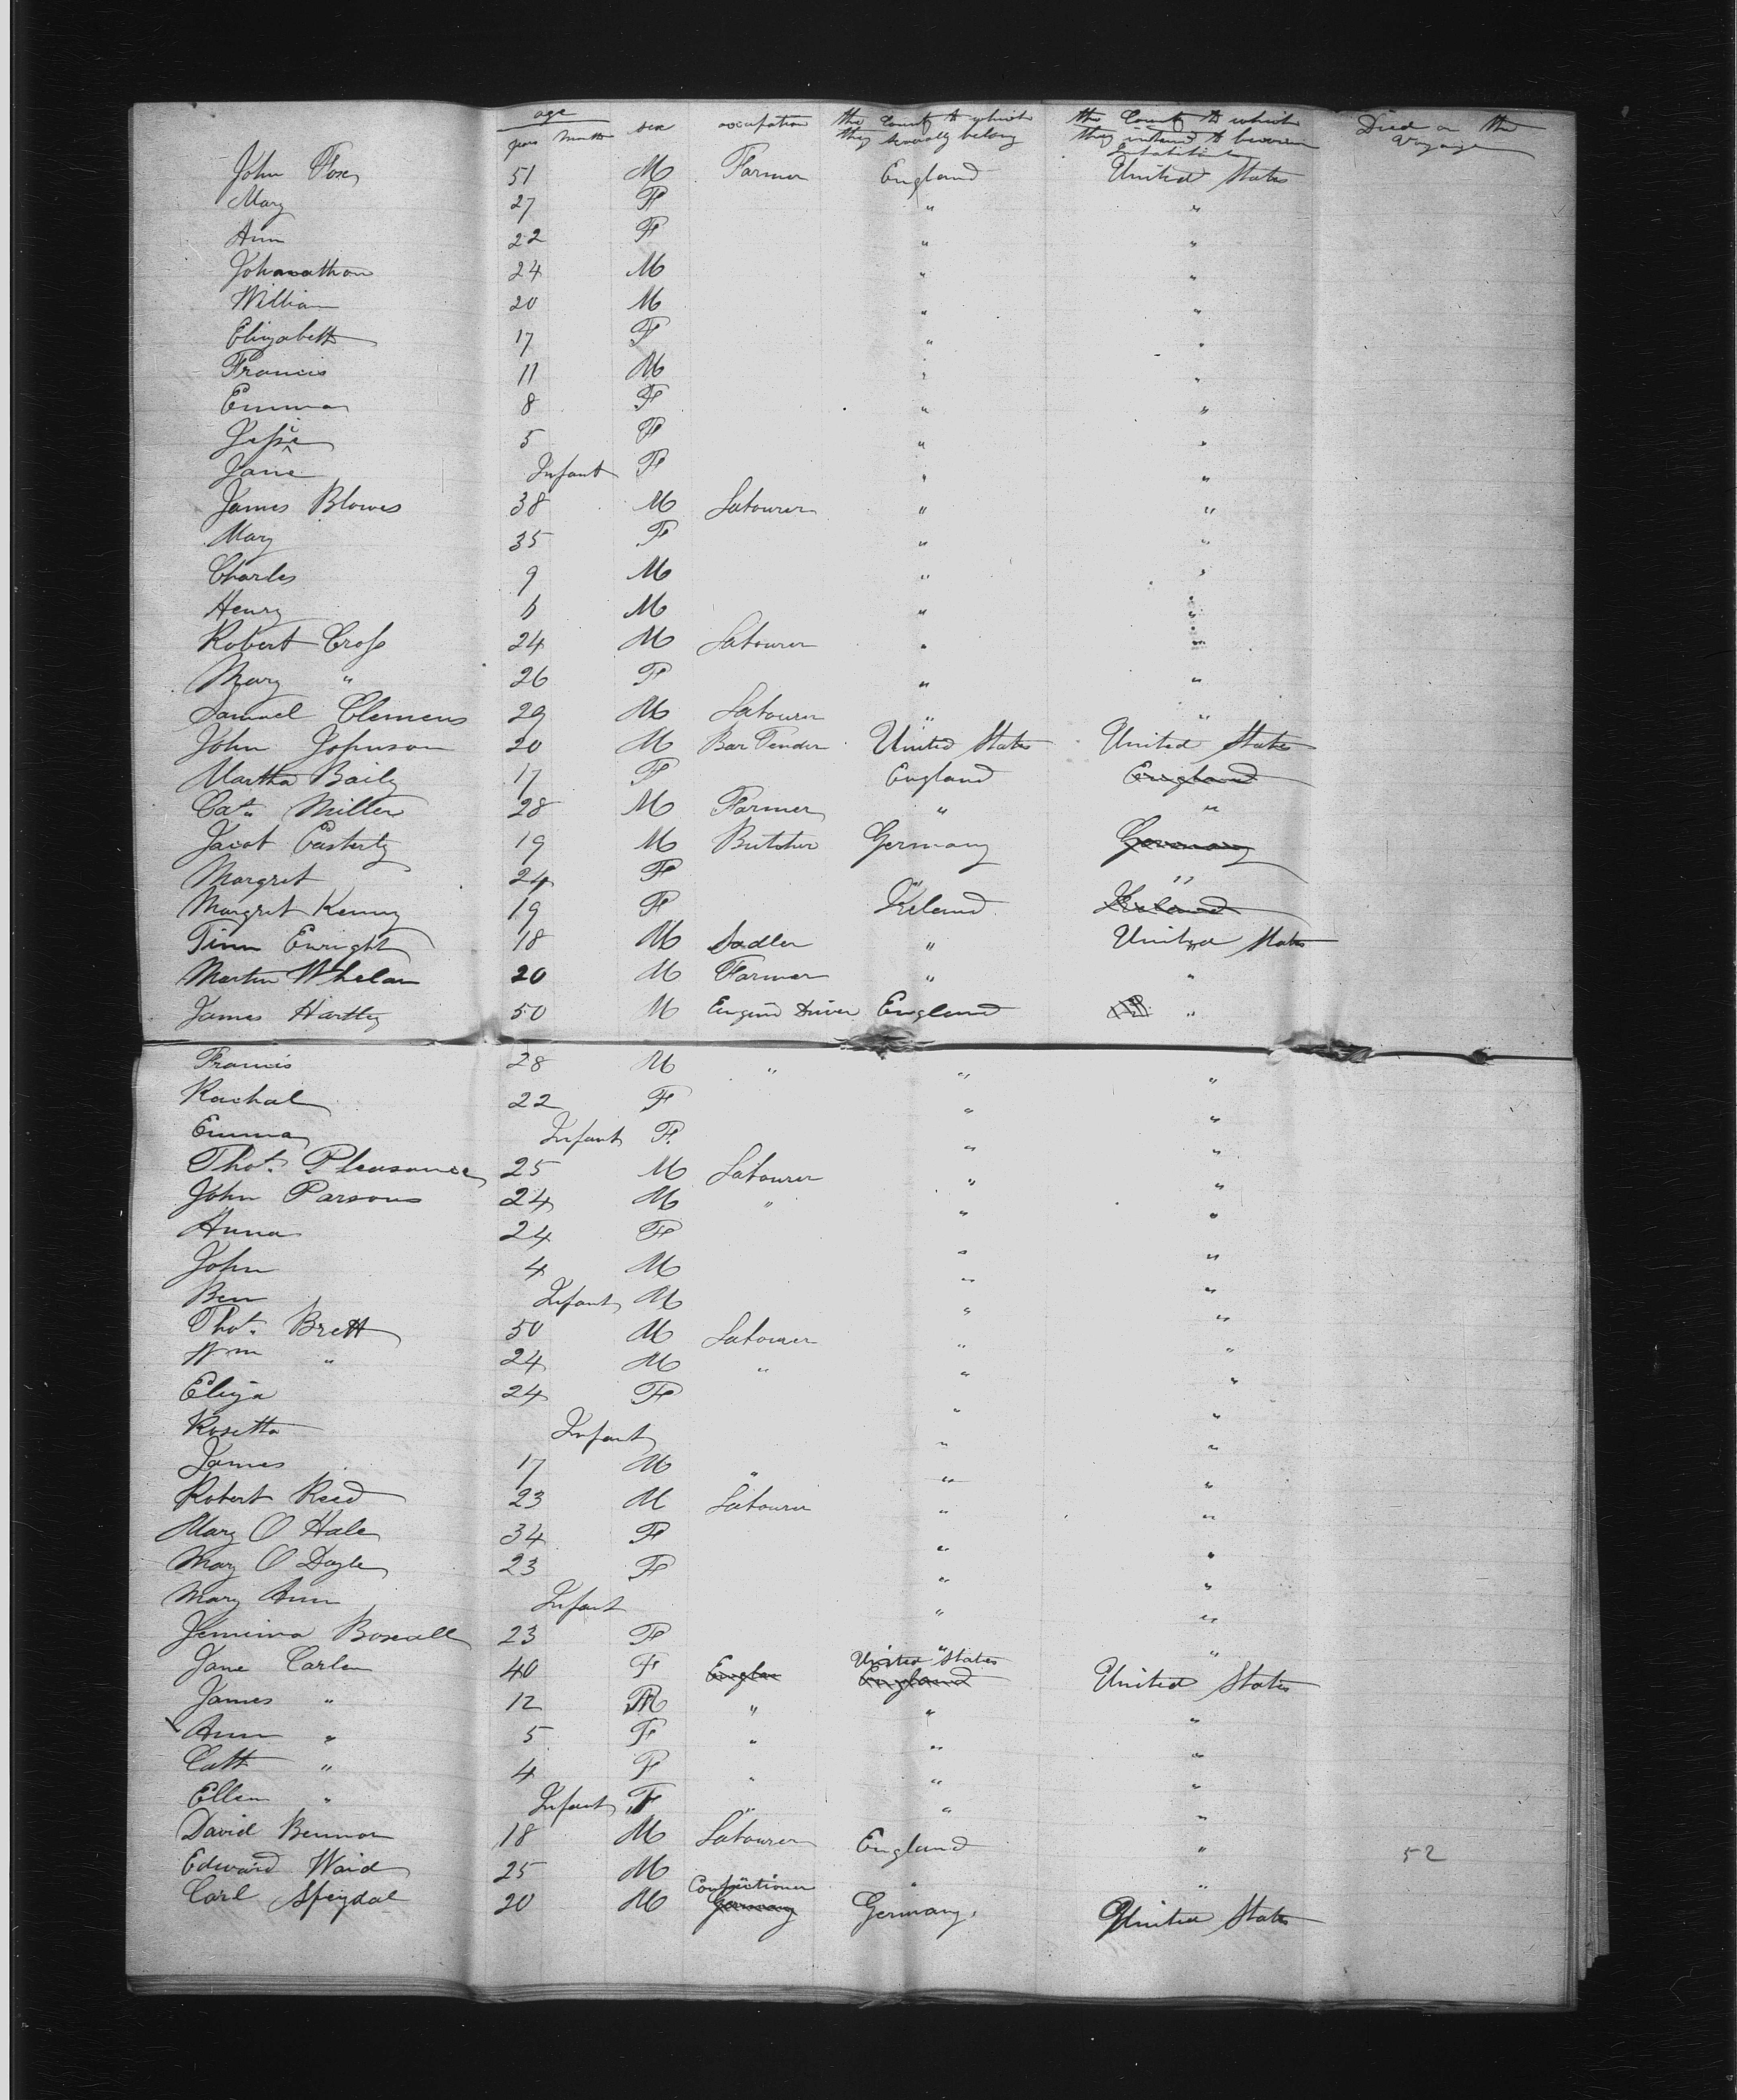 age
years Months sex occupation the County to which they severally belong the County to which they intend to become Inhabitants Died on the voyage
John Fox 51 M Farmer England United States
Mary 27 F " "
Ann 22 F " "
Johanathon 24 M " "
William 20 M " "
Elizabeth 17 F " "
Francis 11 M " "
Emma 8 F " "
Jessie 5 F " "
Jane Infant F " "
James Blowes 38 M Labourer " "
Mary 35 F " "
Charles 9 M " "
Henry 6 M " "
Robert Cross 24 M Labourer " "
Mary " 26 F " "
Samuel Clemens 29 M Labourer " "
John Johnson 20 M Bar Tender United States United States
Martha Baily 17 F England England
Cat. Miller 28 M Farmer " "
Jacob Easterly 19 M Butcher Germany Germany
Margret 24 F " "
Margret Kenny 19 F Ireland Ireland
Timm Enright 18 M Sadler " United States
Martin Whelan 20 M Farmer " "
James Hartley 50 M Engine Driver England "
Francis 28 M " " "
Rachal 22 F " "
Emma Infant F " "
Thos. Pleasance 25 M Labourer " "
John Parsons 24 M " " "
Anna 24 F " "
John 4 M " "
Ben Infant M " "
Thos. Brett 50 M Labourer " "
Wm " 24 M " " "
Eliza 24 F " "
Rosetta Infant " "
James 17 M " " "
Robert Reed 23 M Labourer " "
Mary O Hale 34 F " "
Mary O Doyle 23 F " "
Mary Ann Infant " "
Jemima Boxall 23 F " "
Jane Carlen 40 F Englan United States England United States
James " 12 M " " "
Ann " 5 F " " "
Cath " 4 F " " "
Ellen " Infant F " " "
David Bennon 18 M Labourer England "
Edward Waid 25 M " "
Carl Speydal 20 M Confectioner Germany Germany United States
52